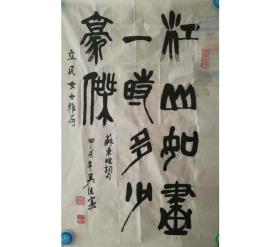 江山如畫
一時多少
豪傑
蘇東坡詞句
甲戌年吳佐
立民女士雅屬